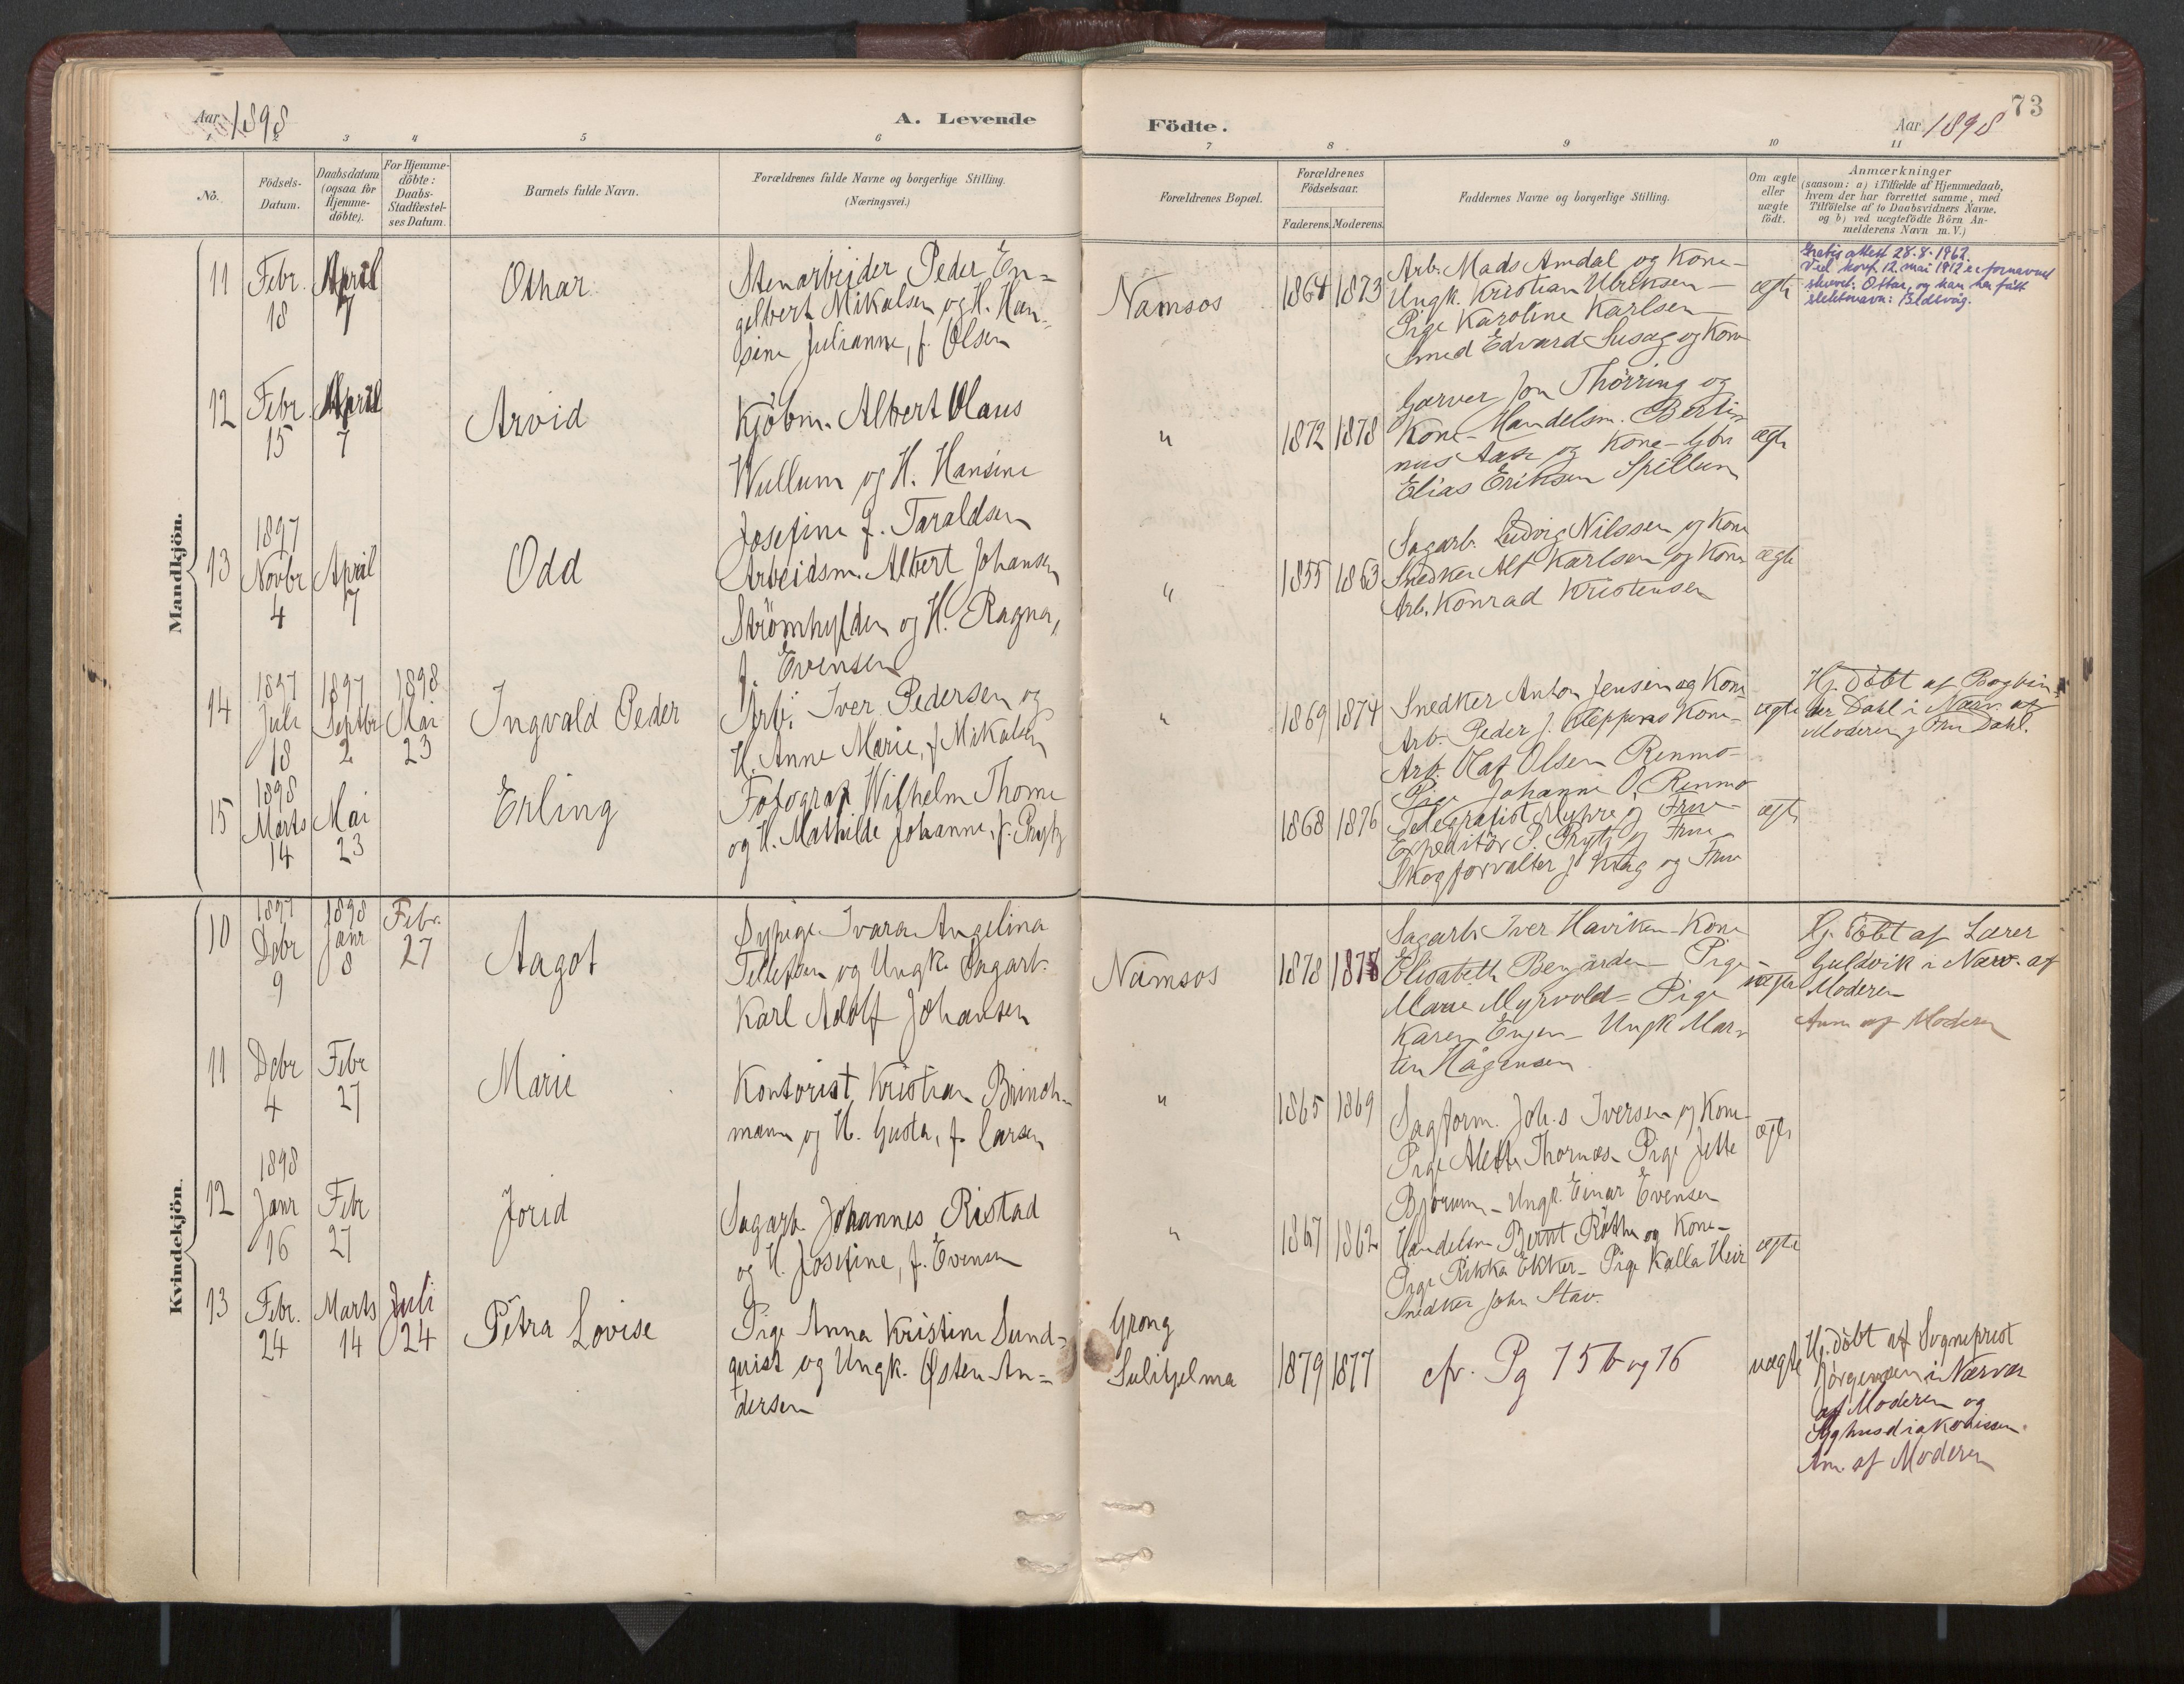 Aar 1898
A. Levende
Födte.
Aar 1898
73
1 2 3 4 5 6 7 8 9 10 11
No.
Födsels-
Datum.
Daabsdatum
(ogsaa for
Hjemme-
döbte).
For Hjemme-
döbte:
Daabs-
Stadfæstel-
ses Datum.
Barnets fulde Navn.
Forældrenes fulde Navne og borgerlige Stilling.
(Næringsvei.)
Forældrenes Bopæl.
Forældrenes
Födselsaar.
Faderens. Moderens.
Faddernes Navne og borgerlige Stilling.
Om ægte
eller
uægte
födt.
Anmærkninger
(saasom: a) i Tilfælde af Hjemmedaab,
hvem der har forrettet samme, med
Tilföielse af to Daabsvidners Navne,
og b) ved uægtefödte Börn An-
melderens Navn m. V.)
Mandkjön.
11
Febr.
18
April
7
Othar
Stenarbeider Peder En-
gelbert Mikalsen og H. Han-
sine Julianne, f. Olsen
Namsos
1864 1873
Arb. Mads Amdal og Kone-
Ungk. Kristian Ulriksen-
Pige Karoline Karlsen
Smed Edvard Susag og Kone
ægte
Gratis attest 28.8.1962.
Ved konf. 12 mai 1912 er fornavnet
skrevet: Ottar, og han har fått
slektsnavn: Eldevåg.
12
Febr.
15
April
7
Arvid
Kjöbm. Albert Olaus
Wullum og H. Hansine
Josefine f. Taraldsen
"
1872 1878
Garver Jon Thörring og
Kone- Handelsm. Berti-
nus Aase og Kone- Gbr
Elias Eriksen Spillum
ægte
13
1897
Novbr
4
April
7
Odd
Arbeidsm. Albert Johansen
Strömhylden og H. Ragna,
f. Evensen
"
1855 1863
Sagarb. Ludvig Nilssen og Kone
Snedker Alf Karlsen og Kone
Arb. Konrad Kristensen
ægte
14
1897
Juli
18
1897
Septbr
2
1898
Mai
23
Ingvald Peder
Arb. Iver Pedersen og
H. Anne Marie, f Mikalsen
"
1869 1874
Snedker Anton Jensen og Kone
Arb. Peder J. Kleppens Kone-
Arb. Olaf Olsen Renmo-
Pige Johanne O. Renmo
ægte
Hj. döbt af Bogbin-
der Dahl i Nærv. af
Moderen og Fru Dahl.
15
1898
Marts
14
Mai
23
Erling
Fotograf Wilhelm Thome
og H. Mathilde Johanne, f. Prytz
1868 1876
Telegrafist Myhre og Frue-
Expeditör P. Prytz og Frue
Skogforvalter J Krag og Frue
ægte
Kvindekjön.
10
1897
Debr
9
1898
Janr
8
Febr.
27
Aagot
Sypige Ivara Angelina
Tellefsen og Ungk. Sagarb.
Karl Adolf Johansen
Namsos
1878 1875
Sagarb. Iver Haviken- Kone
Elisabeth Bergården- Pige
Marie Myrvold- Pige
Karen Engen- Ungk Mar-
tin Hågensen
uægte
Hj. döbt af Lærer
Guldvik i Nærv. af
Moderen
Anm af Moderen
11
Debr
4
Febr
27
Marie
Kontorist Kristian Brinch-
mann og H. Gusta, f. Larsen
"
1865 1869
Sagform. Joh.s Iversen og Kone-
Pige Alette Thornæs- Pige Jette
Björum- Ungk. Einar Evensen
ægte
12
1898
Janr
16
Febr
27
Jorid
Sagarb. Johannes Ristad
og H. Josefine, f. Evensen
"
1867 1862
Handelsm Bernt Röthe og Kone-
Pige Rikka Ekker- Pige Kalla Heir
Snedker John Stav.
ægte
13
Febr.
24
Marts
14
Juli
24
Petra Lovise
Pige Anna Kristine Sund-
quist og Ungk. Østen An-
dersen
Grong
Sulitjelma
1879 1877
cfr. Pg 75 b og 76
uægte
Hj. döbt af Sogneprest
Jörgensen i Nærvær
af Moderen og
Syghusdiakonissen.
Anm. af Moderen